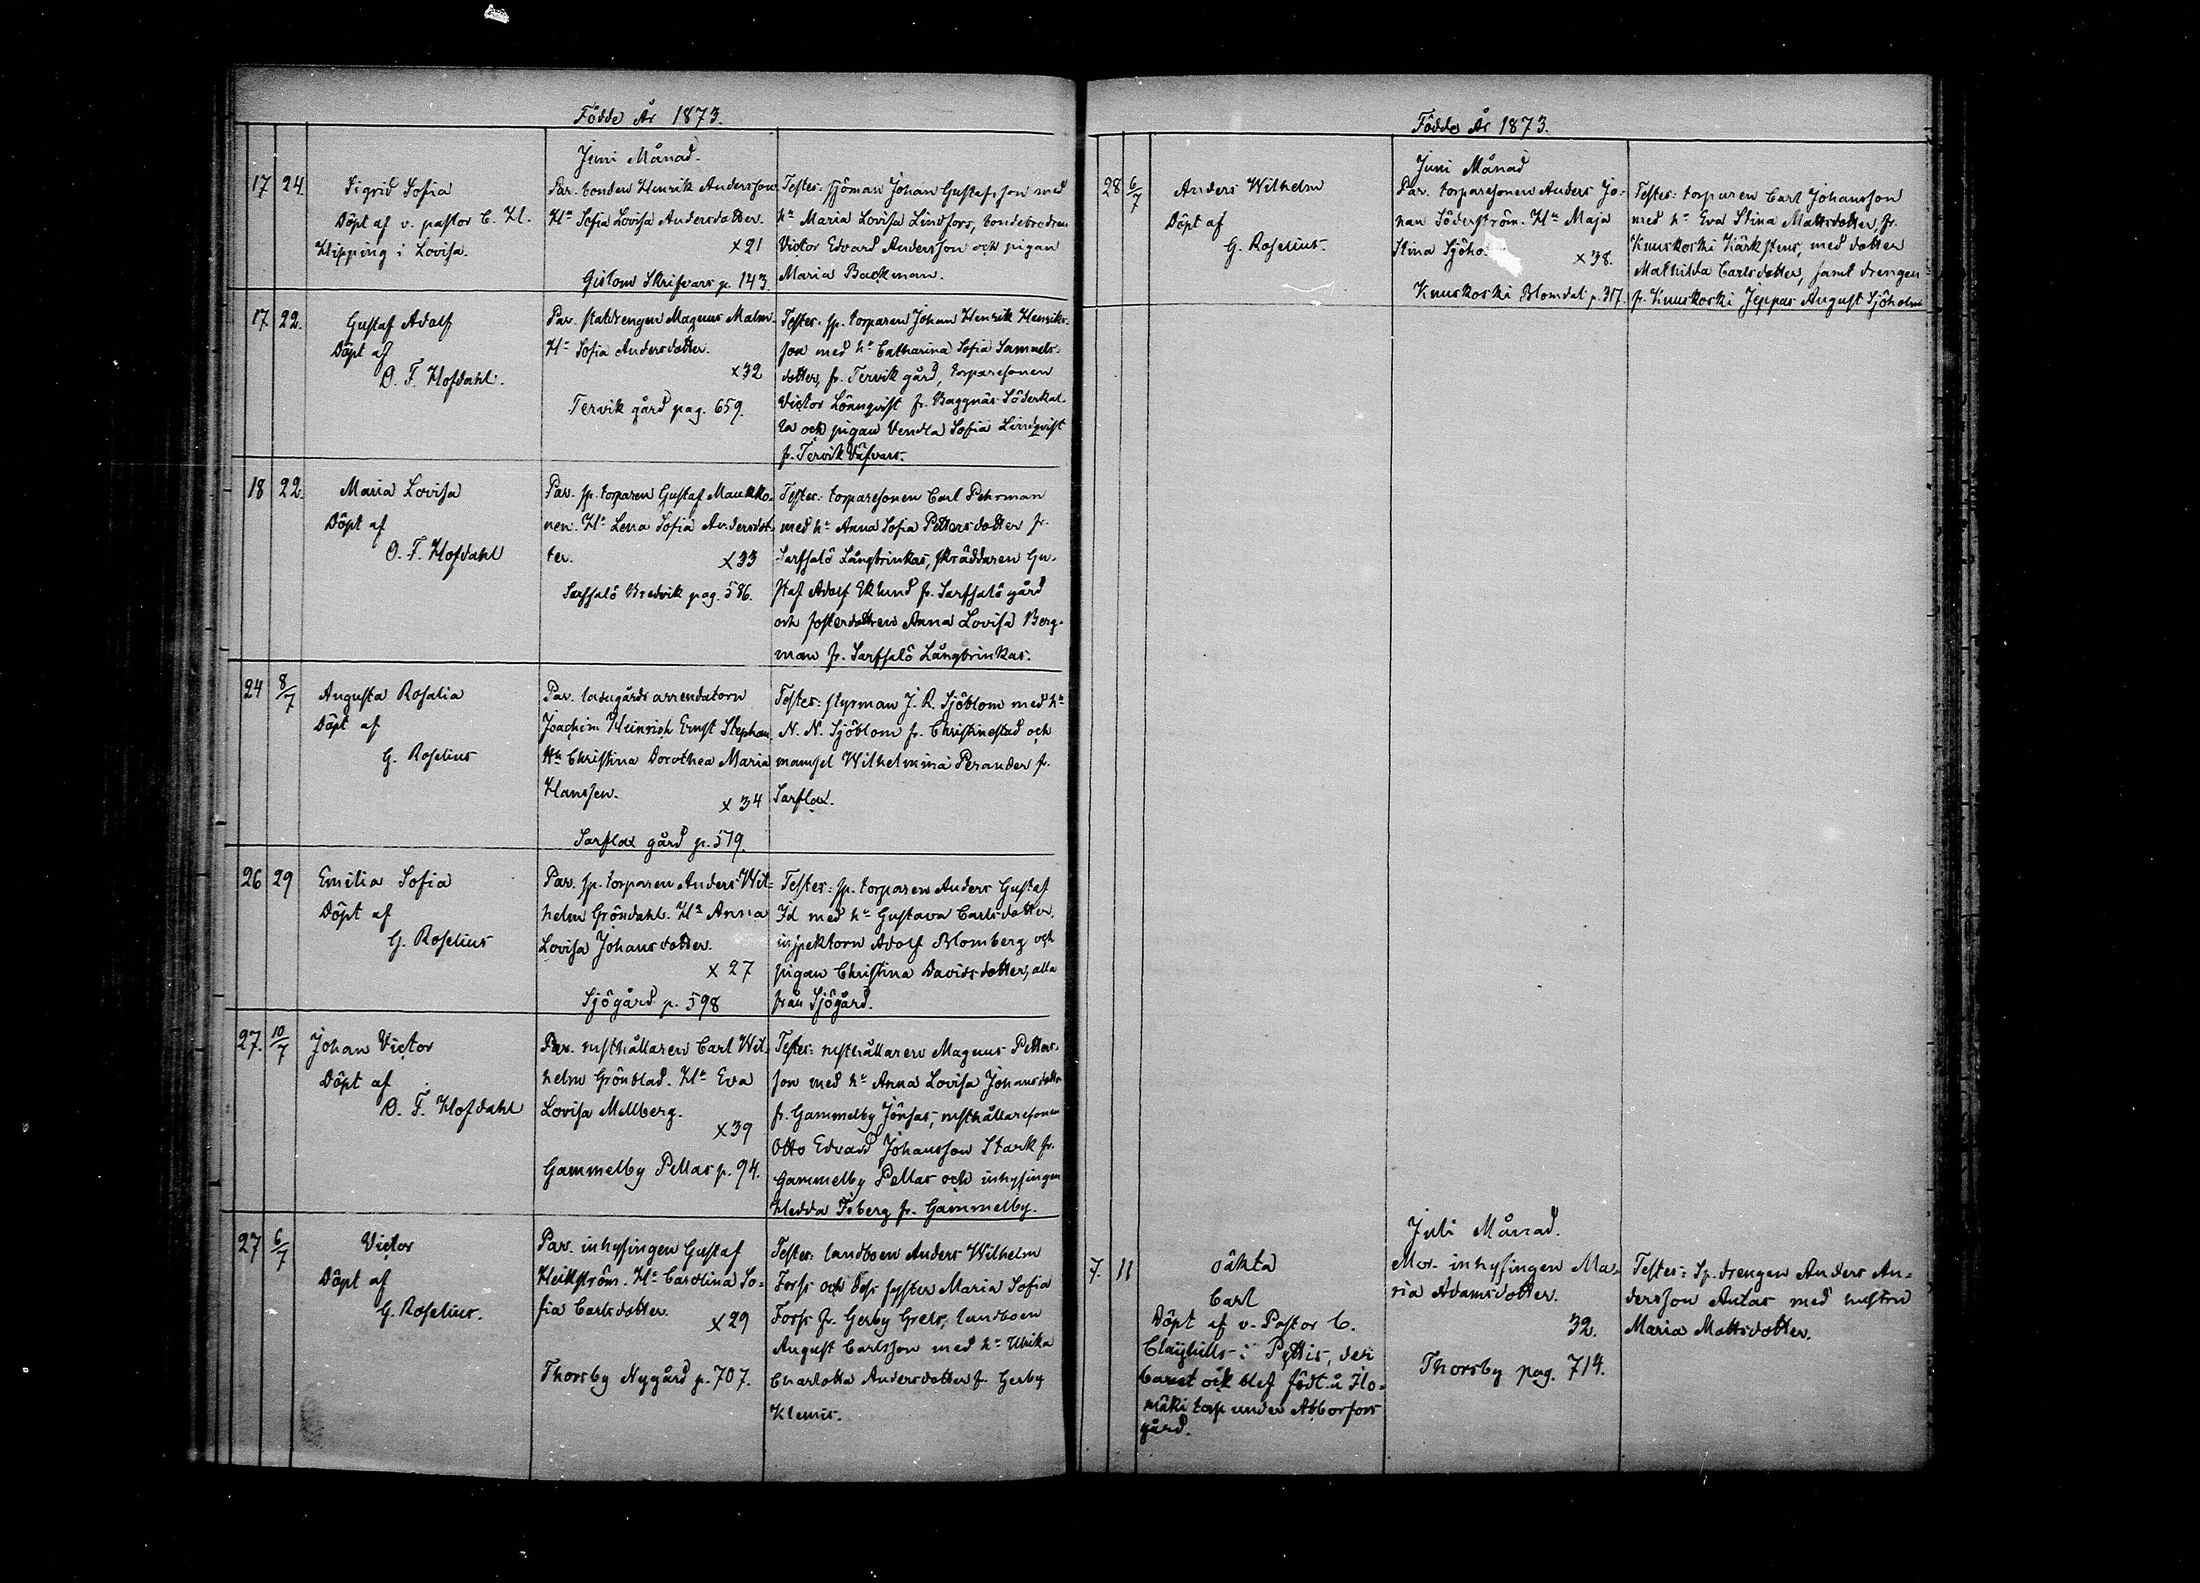 Födde År 1873.
Juni Månad.
17 24. Sigrid Sofia
Döpt af v. pastor C. H.
Klipping i Lovisa.
Par. bonden Henrik Andersson
Hu Sofia Lovisa Andersdotter.
x21
Gislom Skrifvars p. 143.
Testes: sjöman Johan Gustafsson med
hu Maria Lovisa Lindfors, bondebrodren
Victor Edvard Andersson och pigan
Maria Backman.
17 22. Gustaf Adolf
Döpt af
O. F. Hofdahl.
Par. statdrengen Magnus Malm.
Hu Sofia Andersdotter.
x32
Tervik gård pag. 659.
Testes: sp. torparen Johan Henrik Henriks-
son med hu Catharina Sofia Samuels-
dotter, fr. Tervik gård, torparesonen
Victor Lönnqvist fr. Baggnäs Söderkul-
la och pigan Vendla Sofia Lindqvist
fr. Tervik Däfvars.
18 22. Maria Lovisa
Döpt af
O. F. Hofdahl
Par. sp. torparen Gustaf Maukko-
nen. Hu Lena Sofia Andersdot-
ter. x33
Sarfsalö Bredvik pag. 586.
Testes: torparesonen Carl Pehrman
med hu Anna Sofia Pettersdotter fr.
Sarfsalö Långbrinkas, skräddaren Gu-
staf Adolf Eklund fr. Sarfsalö gård
och fosterdottren Anna Lovisa Berg-
man fr. Sarfsalö Långbrinkas.
24 8/7 Augusta Rosalia
Döpt af
G. Roselius
Par. ladugårds arrendatorn
Joachim Heinrich Ernst Stephan
Hu Christina Dorothea Maria
Hanssen. x 34
Sarflax gård p. 579.
Testes: styrman J. R. Sjöblom med hu
N. N. Sjöblom fr. Christinestad och
mamsel Wilhelmina Perander fr.
Sarflax.
26 29 Emilia Sofia
Döpt af
G. Roselius
Par. sp. torparen Anders Wil-
helm Gröndahl. Hu Anna
Lovisa Johansdotter.
x 27
Sjögård p. 598
Testes: sp. torparen Anders Gustaf
Id med hu Gustava Carlsdotter,
inspektorn Adolf Blomberg och
pigan Christina Davidsdotter, alla
från Sjögård.
27. 10/7 Johan Victor
Döpt af
O. F. Hofdahl
Par. rusthållaren Carl Wil-
helm Grönblad. Hu Eva
Lovisa Mellberg.
x39
Gammelby Pellas p. 94.
Testes: rusthållaren Magnus Petters-
son med hu Anna Lovisa Johansdotter
fr. Gammelby Jönsas, rusthållaresonen
Otto Edvard Johansson Stark fr.
Gammelby Pellas och inhysingen
Hedda Isberg fr. Gammelby.
27 6/7 Victor
Döpt af
G. Roselius.
Par. inhysingen Gustaf
Heikström. Hu Carolina So-
fia Carlsdotter.
x29
Thorsby Nygård p. 707.
Testes: landboen Anders Wilhelm
Forss och dess syster Maria Sofia
Forss fr. Gerby Grels, landboen
August Carlsson med hu Ulrika
Charlotta Andersdotter fr. Gerby
Klemis.
Födde År 1873.
Juni Månad
28 6/7 Anders Wilhelm
Döpt af
G. Roselius.
Par. torparesonen Anders Jo-
han Söderström. Hu Maja
Stina Sjöho
x38.
Kuuskoski Blomdal p. 317.
Testes: torparen Carl Johansson
med hu Eva Stina Mattsdotter, fr.
Kuuskoski Kärkstens, med dotter
Mathilda Carlsdotter, samt drengen
fr. Kuuskoski Jeppas August Sjöholm
Juli Månad.
7. 11 oäkta
Carl
Döpt af v. Pastor C.
Clayhills i Pyttis, der
barnet ock blef födt å Ilo-
mäki torp under Abborfors
gård.
Mor. inhysingen Ma-
ria Adamsdotter.
32.
Thorsby pag. 714.
Testes: Sp. drengen Anders An-
dersson Antas med hustru
Maria Mattsdotter.